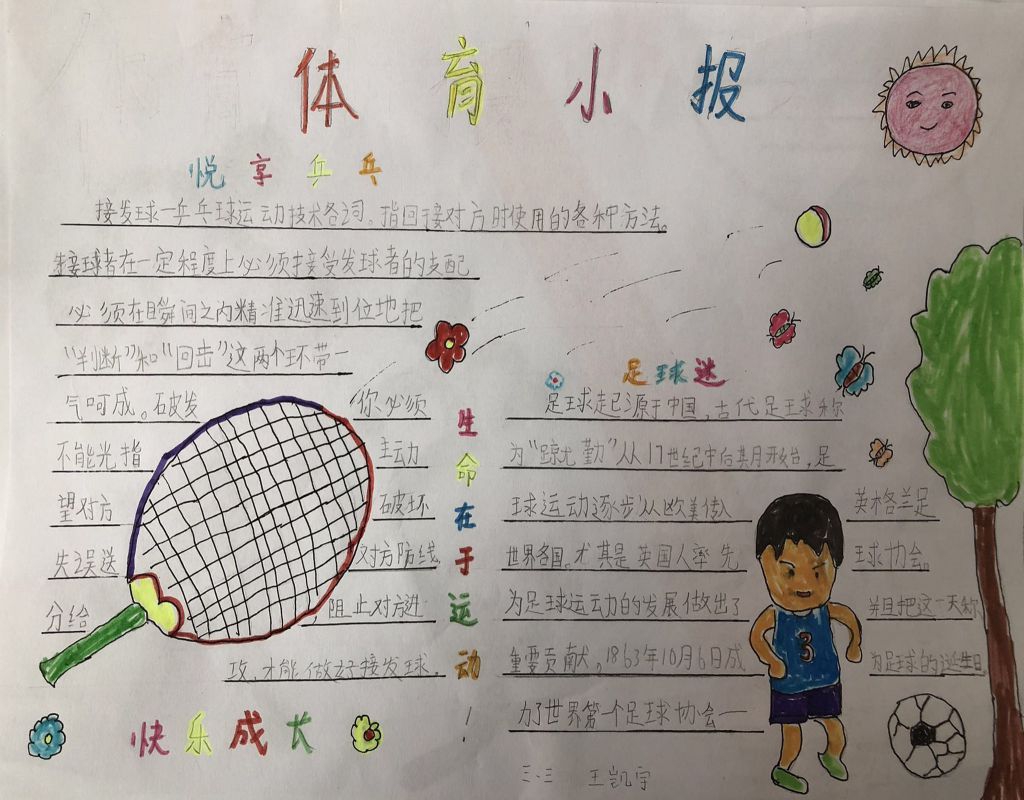 体育小报
悦享乒乓
接发球一乒乓球运动技术名词。指回接对方时使用的各种方法。
接球者在一定程度上必须接受发球者的支配
必须在瞬间之内精准迅速到位地把
“判断”和“回击”这两个环带一
气呵成。破发 你必须
不能光指 主动
望对方 破坏
失误送 对方防线
分给 ,阻止对方进
攻,才能做好接发球。
快乐成长
生命在于运动!
足球迷
足球起源于中国,古代足球称
为“蹴 勤”从17世纪中后其月开始,足
球运动逐步从欧美传入
世界各国。尤其是英国人率先
为足球运动的发展做出了
重要贡献。1863年10月6日成
力了世界第一个足球协会一
英格兰足
球协会。
并且把这一天称
为足球的诞生日
3
三、三 王凯宇